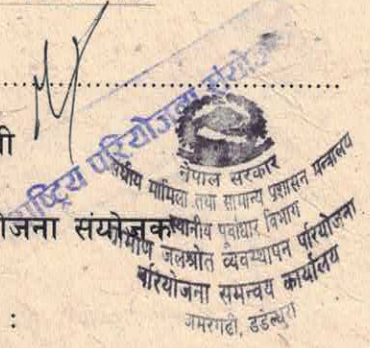 राष्ट्रिय परियोजना संयोजक
ी
योजना संयोजक
:
नेपाल सरकार
संघीय मामिला तथा सामान्य प्रशासन मन्त्रालय
स्थानीय पूर्वाधार विभाग
ग्रामीण जलश्रोत व्यवस्थापन परियोजना
परियोजना समन्वय कार्यालय
अमरगढी, डडेल्धुरा